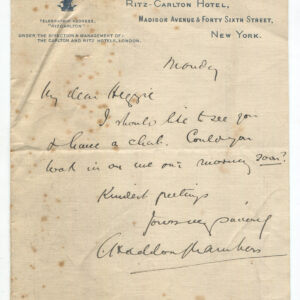 RITZ-CARLTON HOTEL,
MADISON AVENUE & FORTY SIXTH STREET,
NEW YORK.
TELEGRAPHIC ADDRESS,
"RITZCARLTON"
UNDER THE DIRECTION & MANAGEMENT OF
THE CARLTON AND RITZ HOTELS, LONDON.
Monday
My dear Heggie
I should like to see you
& have a chat. Could you
look in on me one morning soon?
Kindest greetings
Yours
C Haddon Chambers